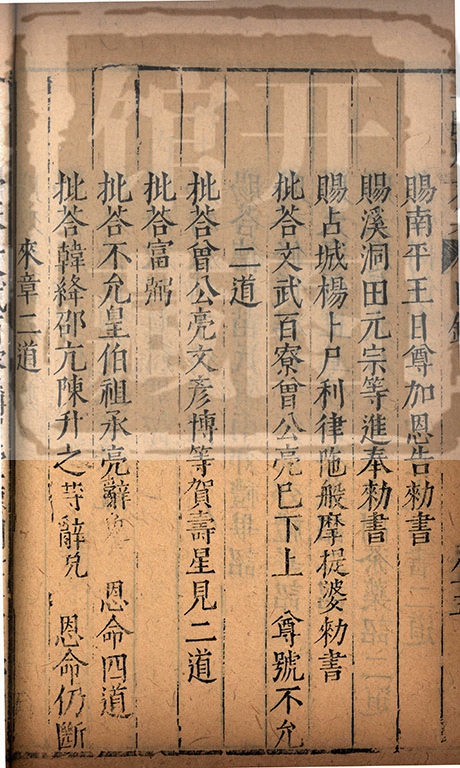 賜南平王日尊加恩告勑書
賜溪洞田元宗等進奉勑書
賜占城楊卜尸利律陁般摩提婆勑書
批荅文武百寮曾公亮巳下上 尊號不允
二道
批荅曾公亮文彥博等賀壽星見二道
批荅富弼
批荅不允皇伯祖承亮辭 恩命四道
批荅韓絳邵亢陳升之等辭免 恩命仍斷
來章二道